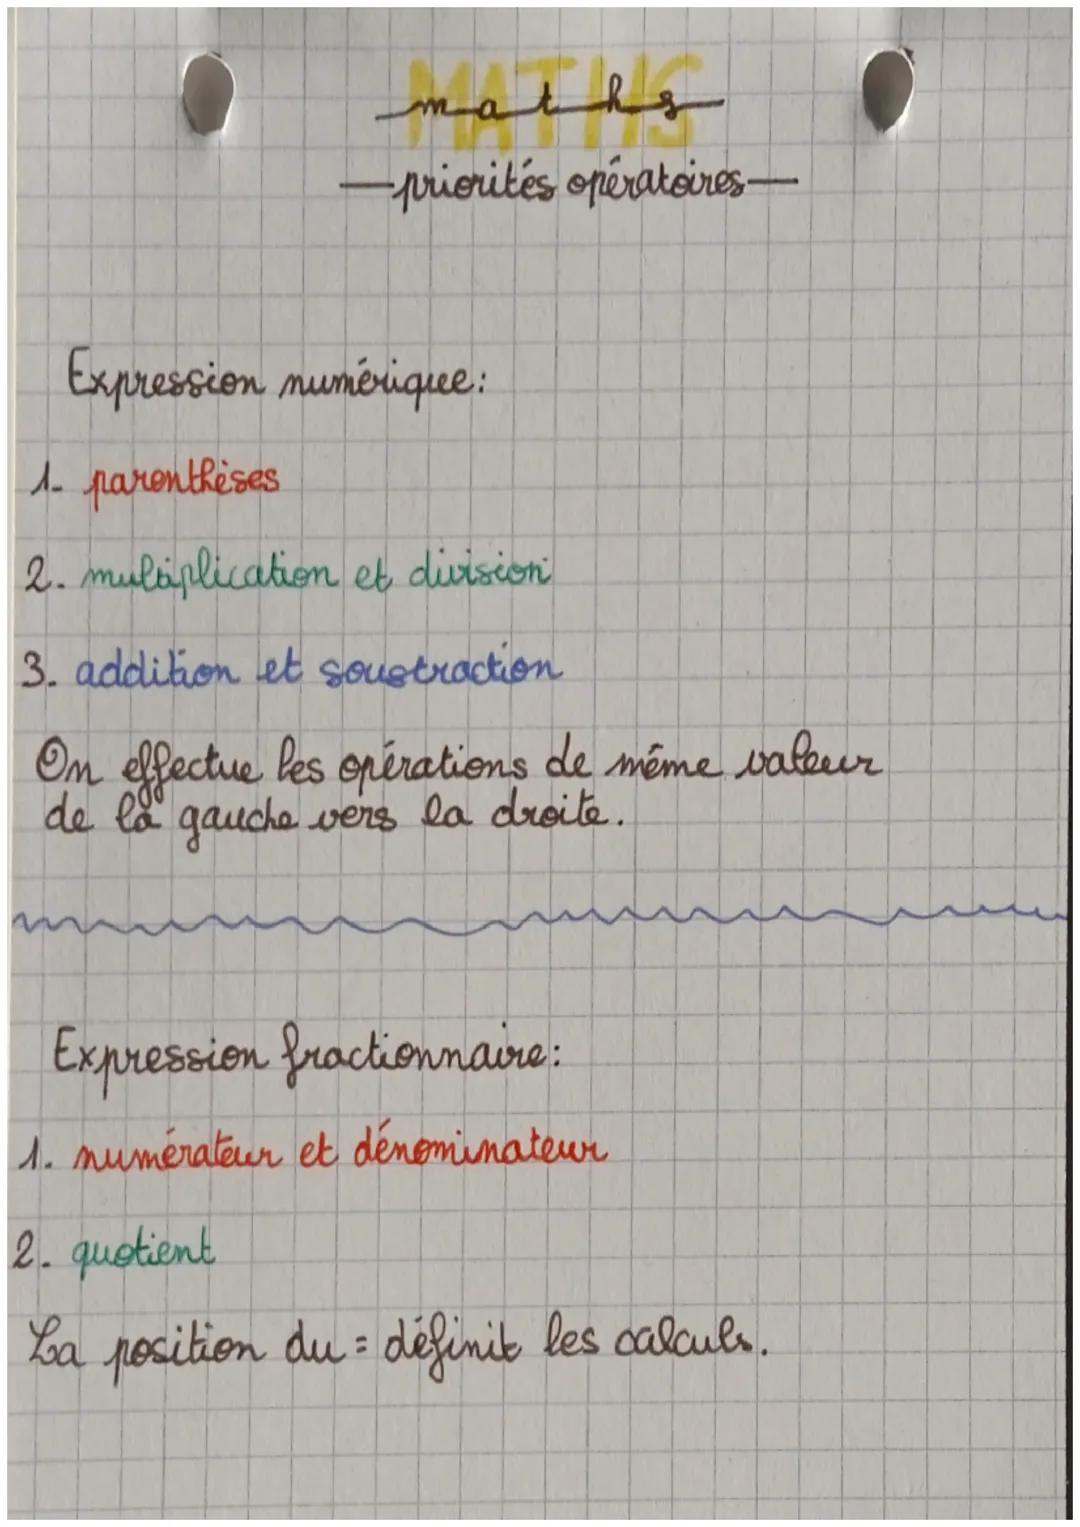 MATHS
maths
—priorités opératoires—
Expression numérique:
1- parenthèses
2. multiplication et division
3. addition et soustraction
On effectue les opérations de même valeur
de la gauche vers la droite.
Expression fractionnaire:
1. numérateur et dénominateur
2. quotient
La position du = définit les calculs.